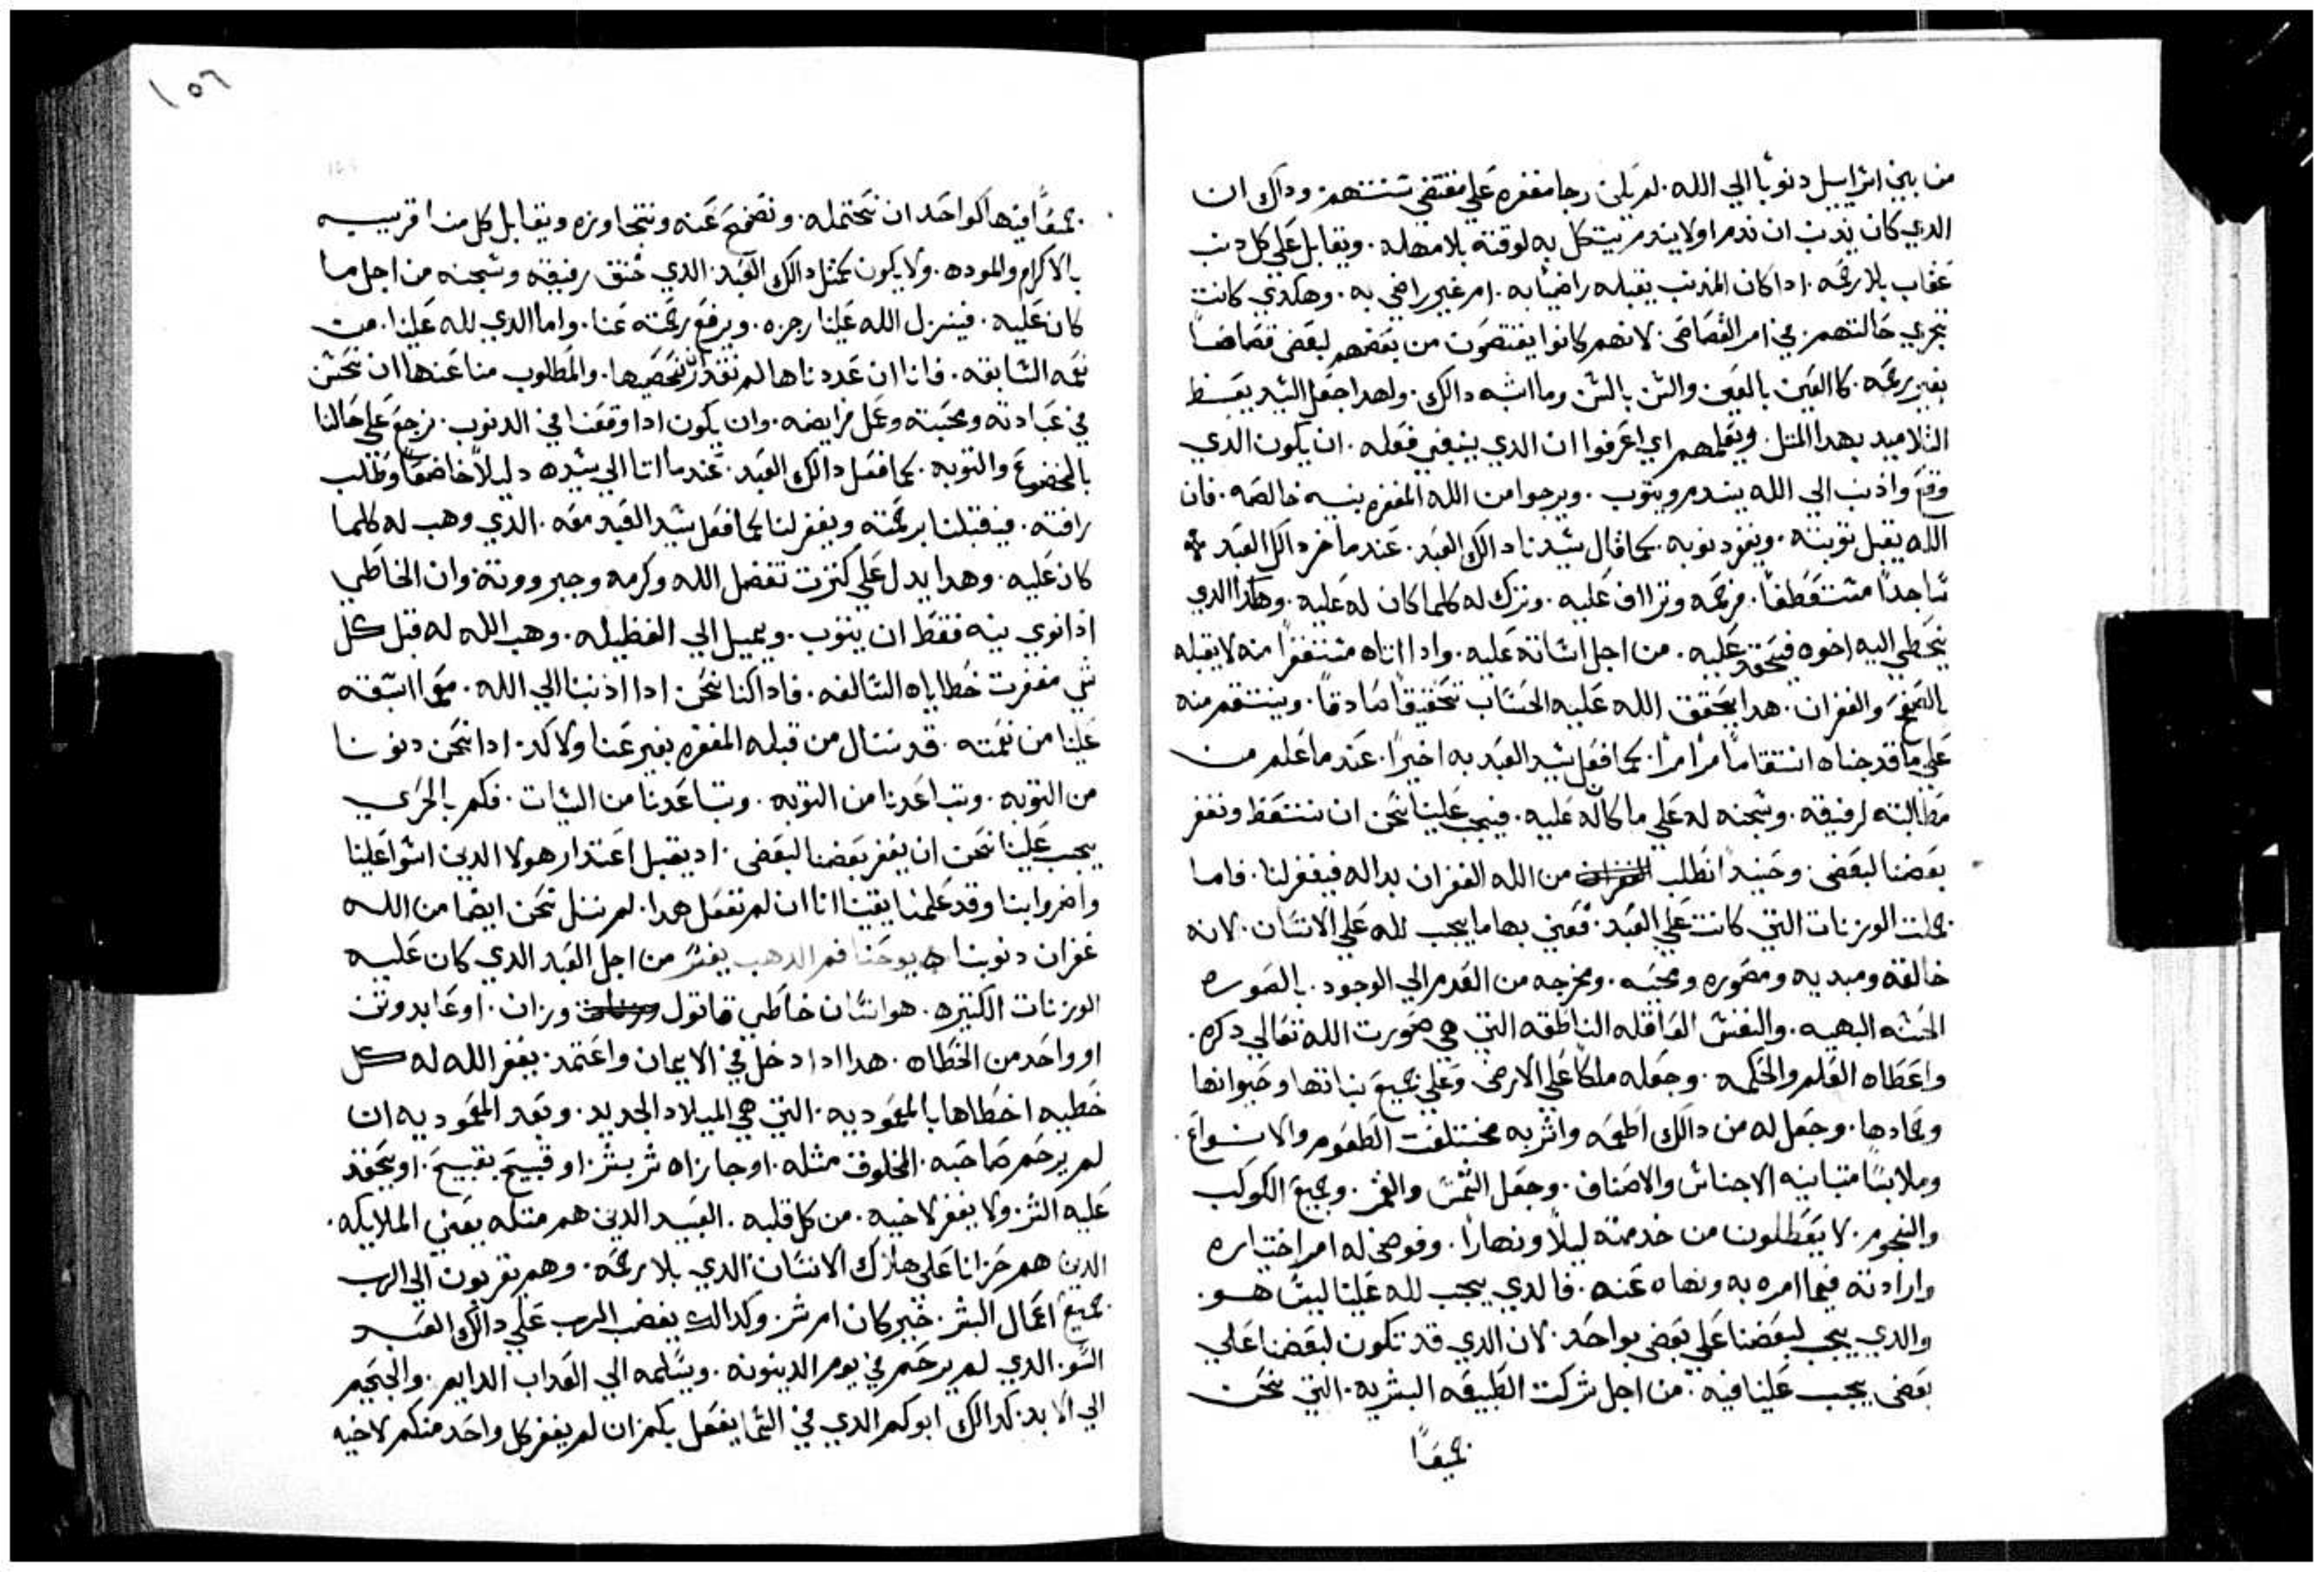 من بين اسراييل دنوبا الي الله. لم يكن رجا مغفره علي مقتضي سنتهم. وداك ان
الدي كان يدنب ان ندم اولا يندم يتكل به لوقته بلا مهله. ويقابل علي كل دنب
عقاب بلا رحمه. ادا كان المدنب يقبله راضيا به. ام غير راضي به. وهكدي كانت
تجري حالتهم. في امر القصاص. لانهم كانوا يقتصون من بعضهم لبعض قصاصا
بغير رحمه. كالعين بالعين والسن بالسن وما اشبه دالك. ولهدا جعل السيد يعظ
التلاميد بهدا المتل. ويعلمهم اي اعرفوا ان الدي ينبغي فعله. ان يكون الدي
وقع واذنب الي الله يندم ويتوب. ويرجوا من الله المغفره بنيه خالصه. فان
الله يقبل توبته. ويغفر دنوبه. كما قال سيدنا دالك العبد. عندما خر دالك العبد
ساجدا مستعطفا. فرحمه وتراأف عليه. وترك له كلما كان له عليه. وهكدا الدي
يخطي اليه اخوه فيحقد عليه. من اجل اساته عليه. وادا اتاه مستغفرا منه لا يقبله
بالصفح والغفران. هدا يحقق الله عليه الحساب تحقيقا صادقا. وينتقم منه
علي ما قد جناه انتقاما مرا مرا. كما فعل سيد العبد به اخيرا. عندما علم من
مطالبته لرفيقه. وسجنه له علي ما كان له عليه. فيجب علينا نحن ان نتعظ ونغفر
بعضنا لبعض. وحينيدا نطلب من الله الغفران بداله فيغفر لنا. فاما
جملت الوزنات التي كانت علي العبد. فعني بها ما يجب لله علي الانسان. لانه
خالقه ومبديه ومصوره ومحييه. ومخرجه من العدم الي الوجود. بالصوره
الحسنه البهيه. والنفس العاقله الناطقه التي هي صورت الله تعالي دكره.
واعطاه العلم والحكمه. وجعله ملكا علي الارض. وعلي جميع نباتها وحيوانها
وجمادها. وجعل له من دالك اطعمه واشربه مختلفت الطعوم والانواع.
وملابسا متباينه الاجناس والاصناف. وجعل الشمس والقمر. وجميع الكوكب
والنجوم. لا يعطلون من خدمته ليلا ونهارا. وفوض له امر اختياره
وارادته فيما امره به ونهاه عنه. فالدي يجب لله علينا ليس هو.
والدي يجب لبعضنا علي بعض بواحد. لان الدي قد تكون لبعضنا علي
بعض يجب علينا فيه. من اجل شركت الطبيعه البشريه. التي نحن
جميعا
١٥٦
جميعا فيها كواحد ان نحتمله. ونصفح عنه ونتجاوزه ويقابل كل منا قريبه
بالاكرام والموده. ولا يكون كمثل دالك العبد. الدي خنق رفيقه وسجنه من اجل ما
كان عليه. فينزل الله علينا رجزه. ويرفع رحمته عنا. واما الدي لله علينا. من
نعمه السابقه. فانا ان عددناها لم نقدر ان نحصيها. والمطلوب منا عنها ان نحسن
في عبادته ومحبته وعمل فرايضه. وان يكون ادا وقعنا في الدنوب. نرجع علي حالنا
بالخضوع والتوبه. كما فعل دالك العبد. عندما اتا الي سيده دليلا خاضعا وطلب
رافته. فيقبلنا برحمته ويغفر لنا كما فعل سيد العبد معه. الدي وهب له كلما
كان عليه. وهدا يدل علي كترت تفضل الله وكرمه وجبرووته. وان الخاطي
اذا نوي بنيه فقط ان يتوب. ويميل الي الفظيله. وهب الله له قبل كل
شي مغفرت خطاياه السالفه. فادا كنا نحن. ادا ادنبنا الي الله. مع ما اسبقه
علينا من نعمته. قد ننال من قبله المغفره بغير عنا ولا كد. ادا نحن دنونا
من التوبه. وتباعدنا من السيات. فكم بالحري
يجب علينا نحن ان يغفر بعضنا لبعض. اد يقبل اعتدار هولا الدين اسوا علينا
واضروا بنا وقد علمنا يقينا انا ان لم نفعل هدا. لم ننل نحن ايضا من الله
غفران دنوبنا يوحنا فم الدهب يفسر من اجل العبد الدي كان عليه
الوزنات الكتيره. هو انسان خاطي قاتول وزان. او عابد وتن
او واحد من الخطاه. هدا ادا دخل في الايمان واعتمد. يغفر الله له كل
خطيه اخطاها بالمعوديه. التي هي الميلاد الجديد. وبعد المعموديه ان
لم يرحم صاحبه. المخلوق مثله. او جازاه شر بشر. او قبيح بقبيح. او يحقد
عليه الشر. ولا يغفر لاخيه. من كل قلبه. العبيد الدين هم متله يعني الملايكه.
الدين هم حزانا علي هلاك الانسان الدي بلا رحمه. وهم يقربون الي الرب
جميع اعمال البشر. خير كان ام شر. وكدالك يغضب الرب علي دالك العبد
السو. الدي لم يرحم في يوم الدينونه. ويسلمه الي العداب الدايم. والجحيم
الي الابد. كدالك ابوكم الدي في السما يفعل بكم. ان لم يغفر كل واحد منكم لاخيه